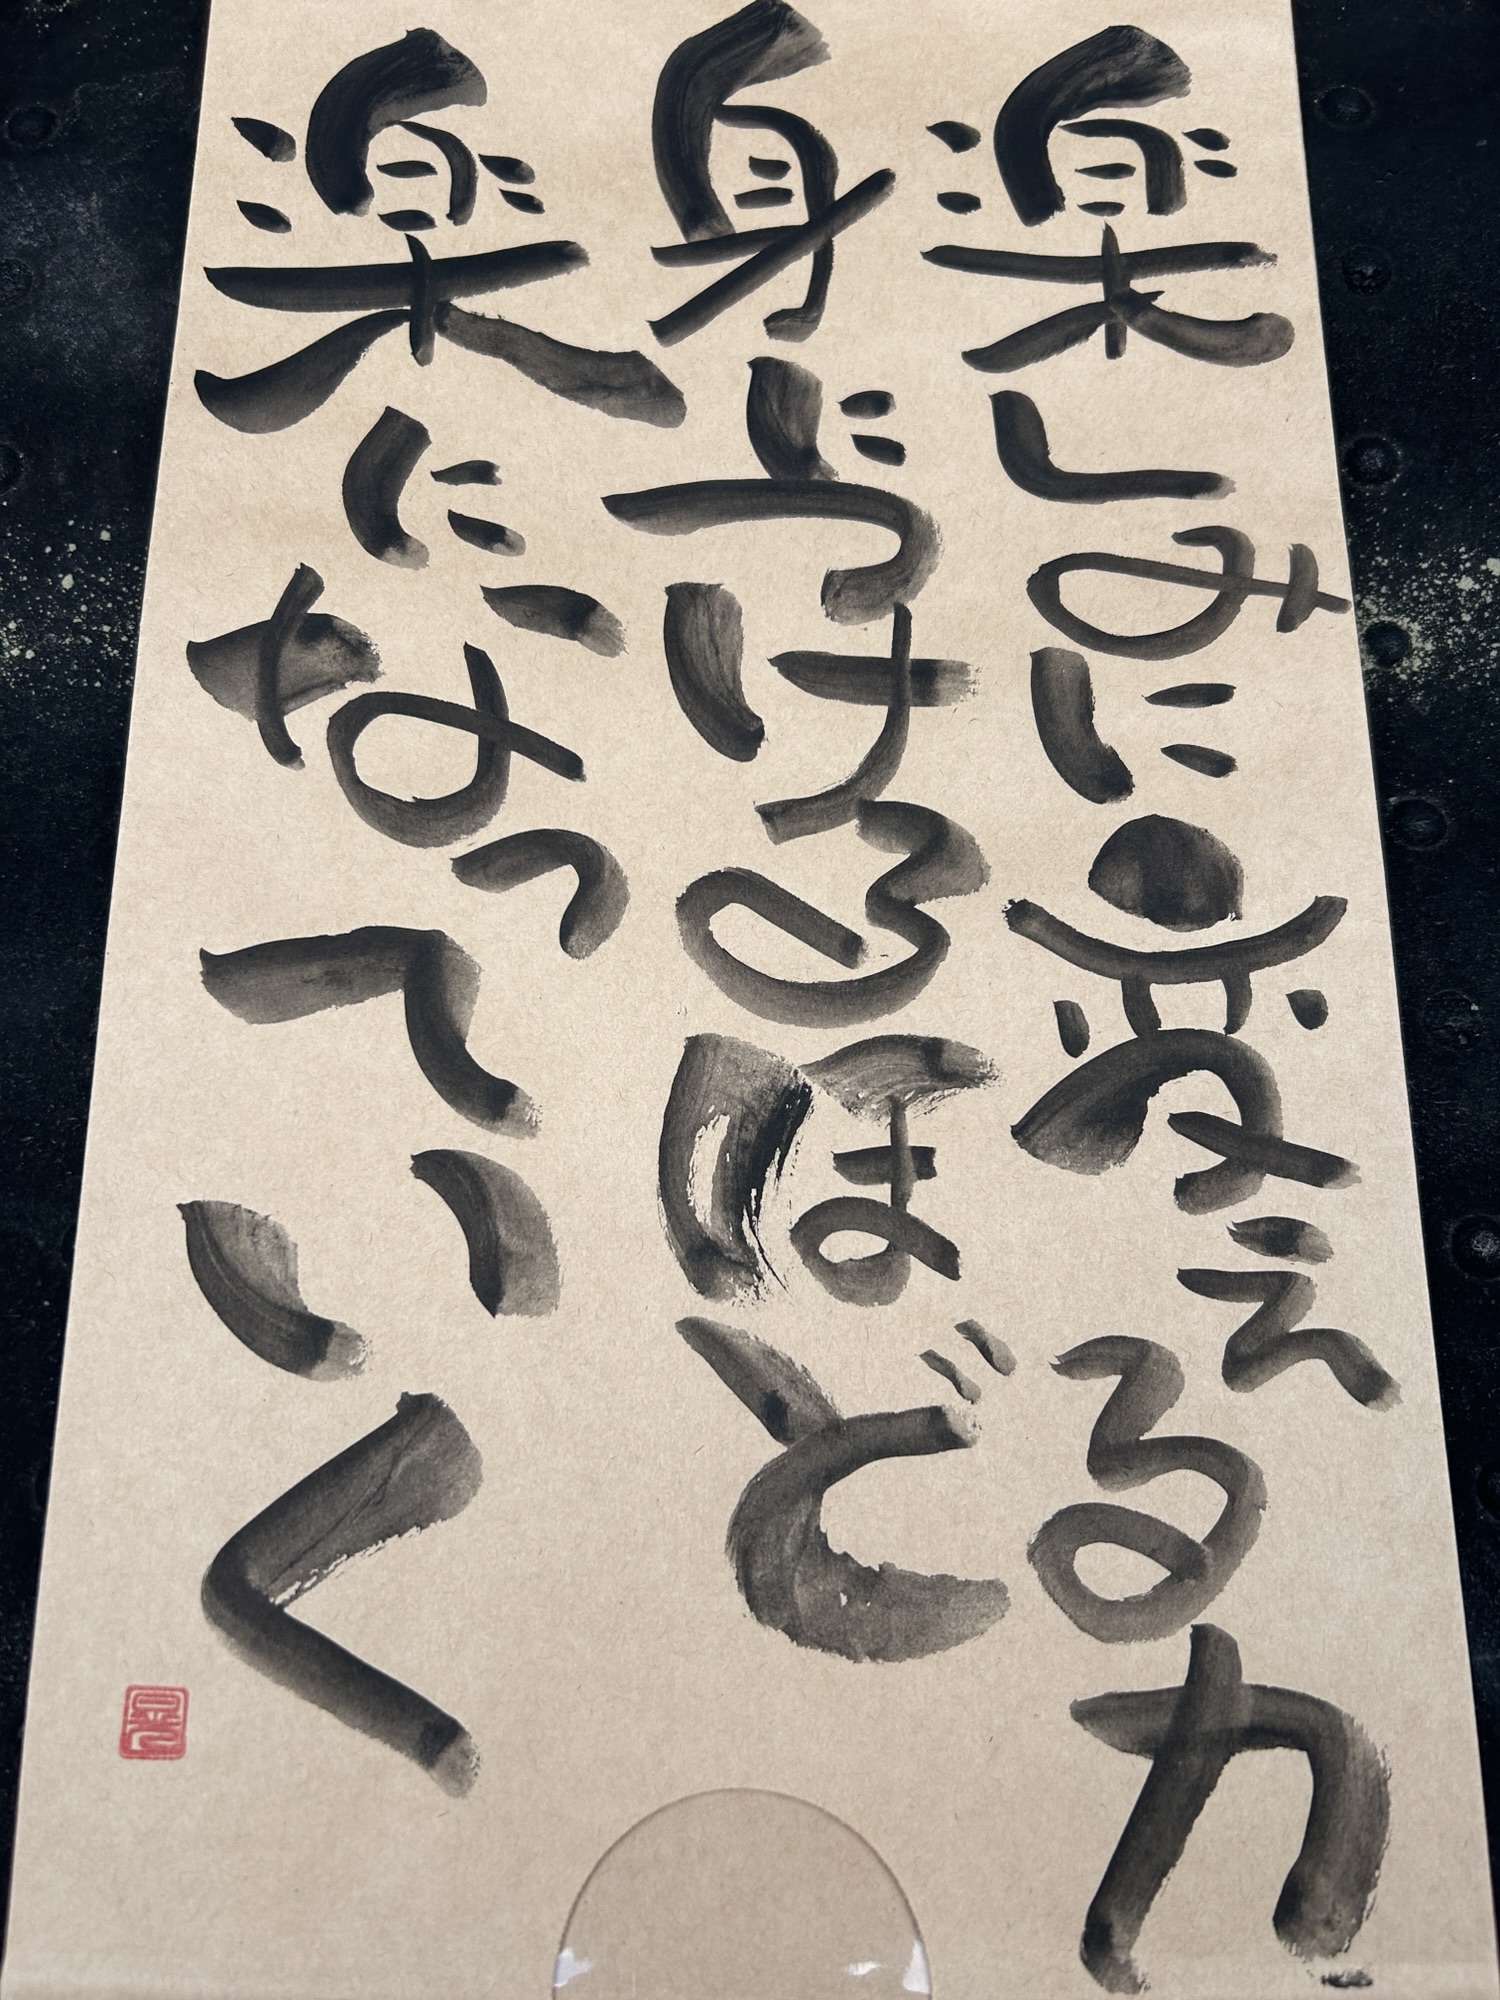 楽しみに変える力
身づけるほど
楽になっていく